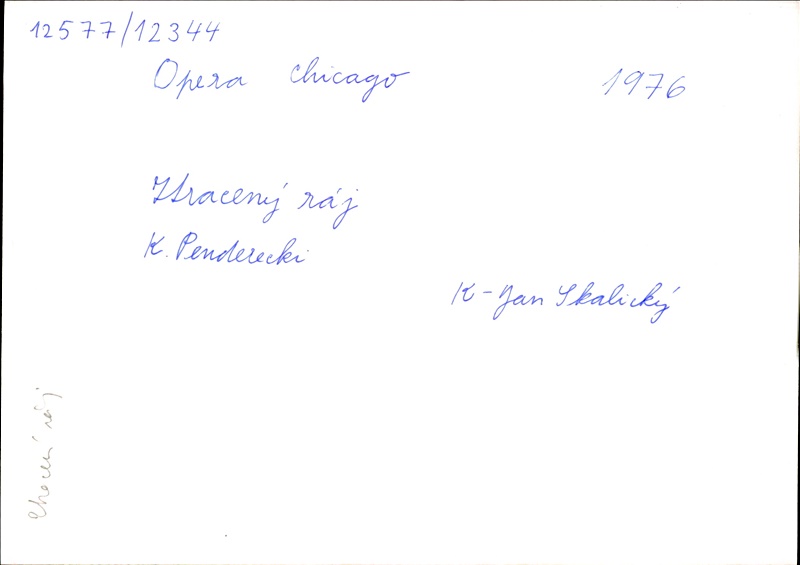 12577/12344
Opera Chicago 1976
Ztracený ráj
K. Penderecki
K - Jan Skalický
ráj